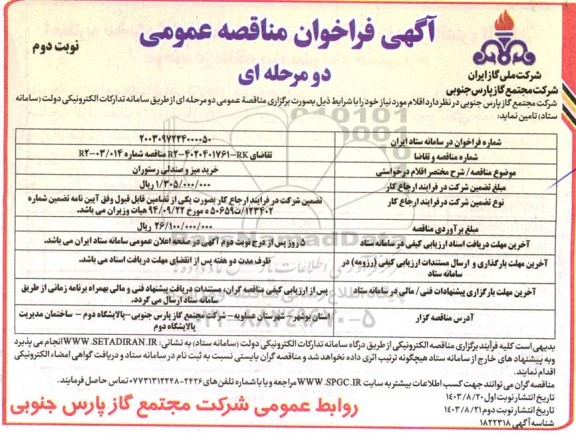 آگهی فراخوان مناقصه عمومی
دو مرحله ای
نوبت دوم
شرکت ملی گاز ایران
شرکت مجتمع گاز پارس جنوبی
شرکت مجتمع گاز پارس جنوبی در نظر دارد اقلام مورد نیاز خود را با شرایط ذیل بصورت برگزاری مناقصة عمومی دو مرحله ای از طریق سامانه تدارکات الکترونیکی دولت (سامانه
ستاد) تامین نماید:
شماره فراخوان در سامانه ستاد ایران ۲۰۰۳۰۹۷۲۲۴۰۰۰۰۵۰
شماره مناقصه و تقاضا تقاضای R2-4020401761-RK مناقصه شماره R2-03/014
موضوع مناقصه / شرح مختصر اقلام درخواستی خرید میز و صندلی رستوران
مبلغ تضمین شرکت در فرایند ارجاع کار ۱/۳۰۵/۰۰۰/۰۰۰ ریال
نوع تضمین شرکت در فرایند ارجاع کار تضمین شرکت در فرایند ارجاع کار بصورت یکی از تضامین قابل قبول وفق آیین نامه تضمین شماره
۱۲۳۴۰۲/ت۵۰۶۵۹ ه مورخ ۹۴/۰۹/۲۲ هیات وزیران می باشد.
مبلغ برآوردی مناقصه ۲۶/۱۰۰/۰۰۰/۰۰۰ ریال
آخرین مهلت دریافت اسناد ارزیابی کیفی در سامانه ستاد ۵ روز پس از درج نوبت دوم آگهی در صفحه اعلان عمومی سامانه ستاد ایران می باشد.
آخرین مهلت بارگذاری و ارسال مستندات ارزیابی کیفی (رزومه) در
سامانه ستاد ظرف مدت دو هفته پس از انقضای مهلت دریافت اسناد می باشد.
آخرین مهلت بارگزاری پیشنهادات فنی / مالی در سامانه ستاد پس از ارزیابی کیفی مناقصه گران، مستندات دریافت پیشنهاد فنی و مالی بهمراه برنامه زمانی از طریق
سامانه ستاد ارسال می گردد.
آدرس مناقصه گزار استان بوشهر - شهرستان عسلویه - شرکت مجتمع گاز پارس جنوبی - پالایشگاه دوم - ساختمان مدیریت
پالایشگاه دوم
بدیهی است کلیه فرآیند برگزاری مناقصه الکترونیکی از طریق درگاه سامانه تدارکات الکترونیکی دولت (سامانه ستاد) به نشانی: WWW.SETADIRAN.IR انجام می پذیرد
و به پیشنهاد های خارج از سامانه ستاد هیچگونه ترتیب اثری داده نخواهد شد و مناقصه گران بایستی نسبت به ثبت نام در سامانه ستاد و دریافت گواهی امضاء الکترونیکی
اقدام نمایند.
مناقصه گران می توانند جهت کسب اطلاعات بیشتر به سایت WWW.SPGC.IR مراجعه و یا با شماره تلفن های ۲۴۲۶-۰۷۷۳۱۳۱۲۲۴۸ تماس حاصل فرمایند.
تاریخ انتشار نوبت اول ۱۴۰۳/۸/۲۰
تاریخ انتشار نوبت دوم ۱۴۰۳/۸/۲۱
شناسه آگهی ۱۸۲۲۳۱۸
روابط عمومی شرکت مجتمع گاز پارس جنوبی